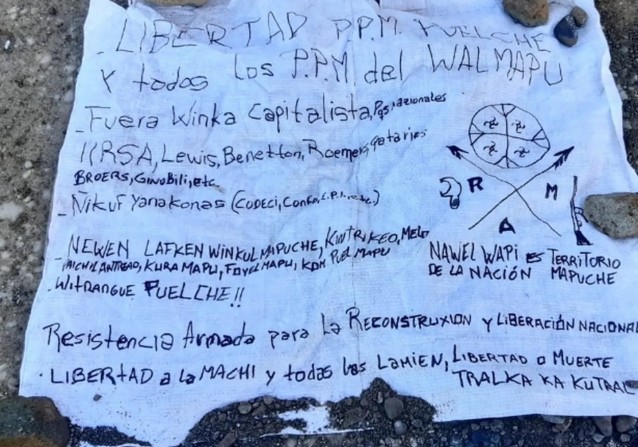 - LIBERTAD P.P.M. PUELCHE
Y todos los P.P.M del WALMAPU
- Fuera Winka Capitalista,
IIRSA, Lewis, Benetton, Roemers, Qataries
BROERS, GINOBILI, etc
- Nikuf Yanakonas (CODECI,
- NEWEN LAFKEN WINKUL MAPUCHE,
KURA MAPU, FOYEL MAPU, KDM PUEL MAPU
- WITRANGUE PUELCHE!!
R M
A
NAWEL WAPI es TERRITORIO
DE LA NACIÓN MAPUCHE
Resistencia Armada para la RECONSTRUXION y LIBERACIÓN NACIONAL
- LIBERTAD a la MACHI y todas las LAMIEN, LIBERTAD O MUERTE
TRALKA KA KUTRAL